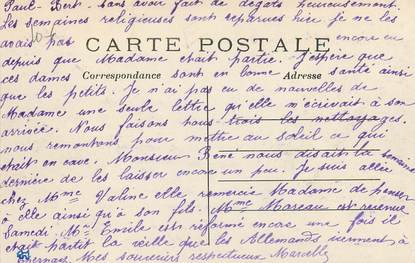 Paul-Bert - sans avoir fait de dégâts heureusement.
Les semaines religieuses sont reparues hier je ne les
avais pas encore eu
CARTE POSTALE
depuis que Madame était partie. J'espère que
Correspondance
Adresse
ces dames sont en bonne santé ainsi
que les petits. Je n'ai pas eu de nouvelles de
Madame une seule lettre qu'elle m'écrivait à son
arrivée. Nous faisons tous trois les nettoyages.
nous remontons pour mettre au soleil ce qui
était en cave. Monsieur René nous disait la semaine
dernière de les laisser encore un peu. Je suis allée
chez Mme Valine elle remercie Madame de penser
à elle ainsi qu'à son fils. Mme Moreau est revenue
Samedi. Mr Emile est réformé encore une fois il
était parti la veille que les Allemands viennent à
Mes souvenirs respectueux